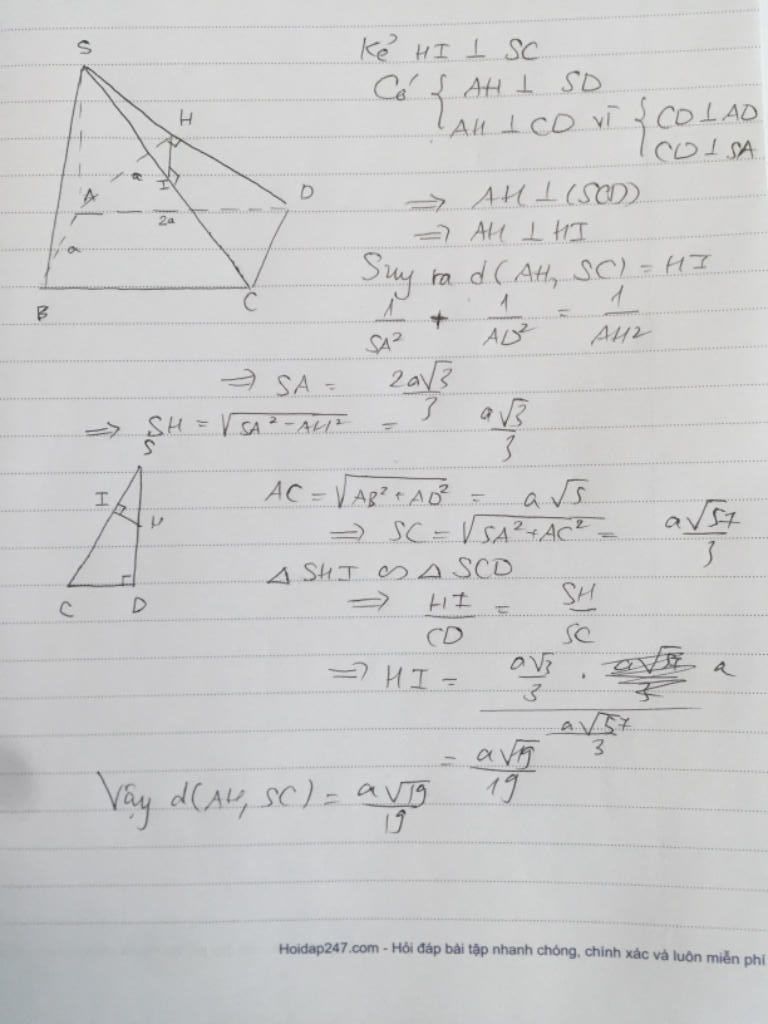 S
H
a
I
A
D
2a
a
B
C
Kẻ HI ⊥ SC
Có { AH ⊥ SD
AH ⊥ CD vì { CD ⊥ AD
CD ⊥ SA
⇒ AH ⊥ (SCD)
⇒ AH ⊥ HI
Suy ra d(AH, SC) = HI
1/SA² + 1/AD² = 1/AH2
⇒ SA = 2a√3/3
⇒ SH = √(SA² - AH²) = a√3/3
S
I
H
C D
AC = √(AB² + AD²) = a√5
⇒ SC = √(SA² + AC²) = a√57/3
Δ SHI ∽ Δ SCD
⇒ HI/CD = SH/SC
⇒ HI = (a√3/3 . a)/(a√57/3)
= a√19/19
Vậy d(AH, SC) = a√19/19
Hoidap247.com - Hỏi đáp bài tập nhanh chóng, chính xác và luôn miễn phí